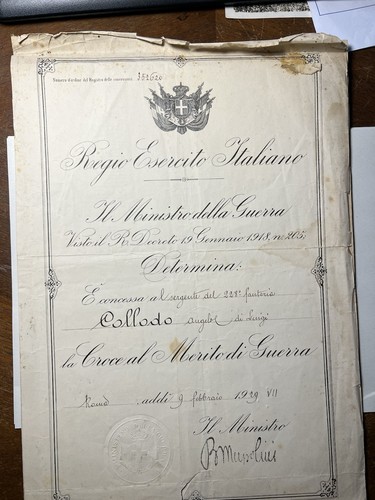 Numero d'ordine del Registro delle concessioni 352620
Regio Esercito Italiano
Il Ministro della Guerra
Visto il R. Decreto 19 Gennaio 1918, n. 205,
Determina:
È concessa al sergente del 228° fanteria
Collodo Angelo di Luigi
la Croce al Merito di Guerra
Roma addì 9 febbraio 1929 VII
Il Ministro
B Mussolini